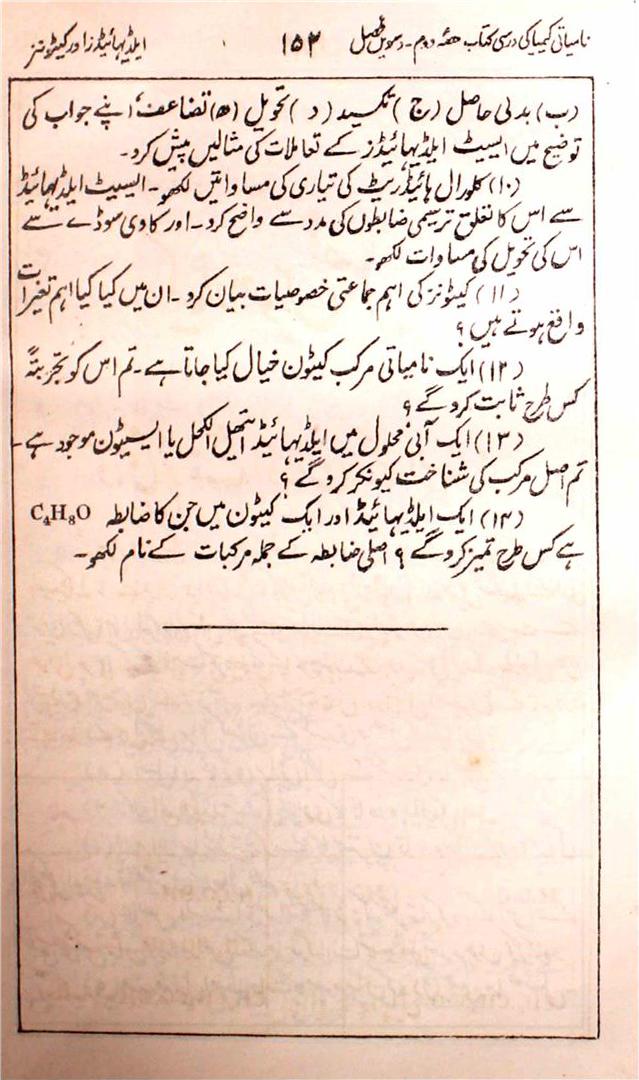 نامیاتی کیمیا کی درسی کتاب حصّہ دوم ۔ دسویں فصل ۱۵۳ ایلڈیہائیڈز اور کیٹونز
(ب) بدلی حاصل (ج) تکسید (د) تحویل (ھ) تضاعف‘ اپنے جواب کی
توضیح میں ایسیٹ ایلڈیہائیڈز کے تعاملات کی مثالیں پیش کرو۔
(۱۰) کلورال ہائیڈریٹ کی تیاری کی مساواتیں لکھو۔ ایسیٹ ایلڈیہائیڈ
سے اس کا تعلق ترسیمی ضابطوں کی مدد سے واضح کرو۔ اور کاوی سوڈے سے
اس کی تحویل کی مساوات لکھو۔
(۱۱) کیٹونز کی اہم جماعتی خصوصیات بیان کرو ۔ ان میں کیا کیا اہم تغیرات
واقع ہوتے ہیں؟
(۱۲) ایک نامیاتی مرکب کیٹون خیال کیا جاتا ہے۔ تم اس کو تجربتہً
کس طرح ثابت کرو گے؟
(۱۳) ایک آبی محلول میں ایلڈیہائیڈ ایتھیل الکحل یا ایسیٹون موجود ہے۔
تم اصل مرکب کی شناخت کیونکر کرو گے؟
(۱۴) ایک ایلڈیہائیڈ اور ایک کیٹون میں جن کا ضابطہ C₄H₈O
ہے کس طرح تمیز کرو گے؟ اصلی ضابطہ کے جملہ مرکبات کے نام لکھو۔